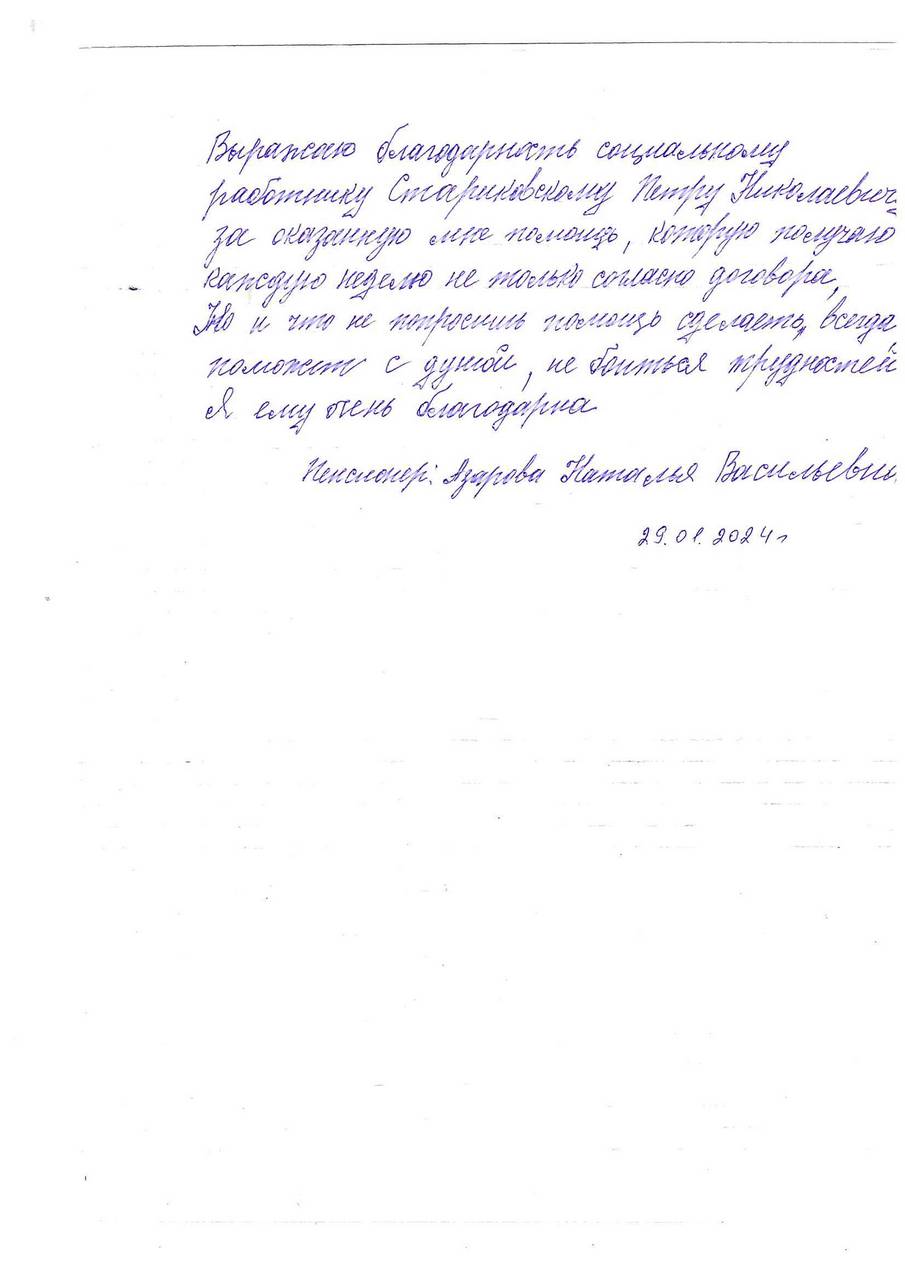 Выражаю благодарность социальному
работнику Стариковскому Петру Николаевич
за оказанную мне помощь, которую получаю
каждую неделю не только согласно договора,
Но и что не попросишь помощь сделаеть, всегда
поможет с душой, не боиться трудностей
Я ему очень благодарна
Пенсионер: Азарова Наталья Васильевн
29.01.2024г